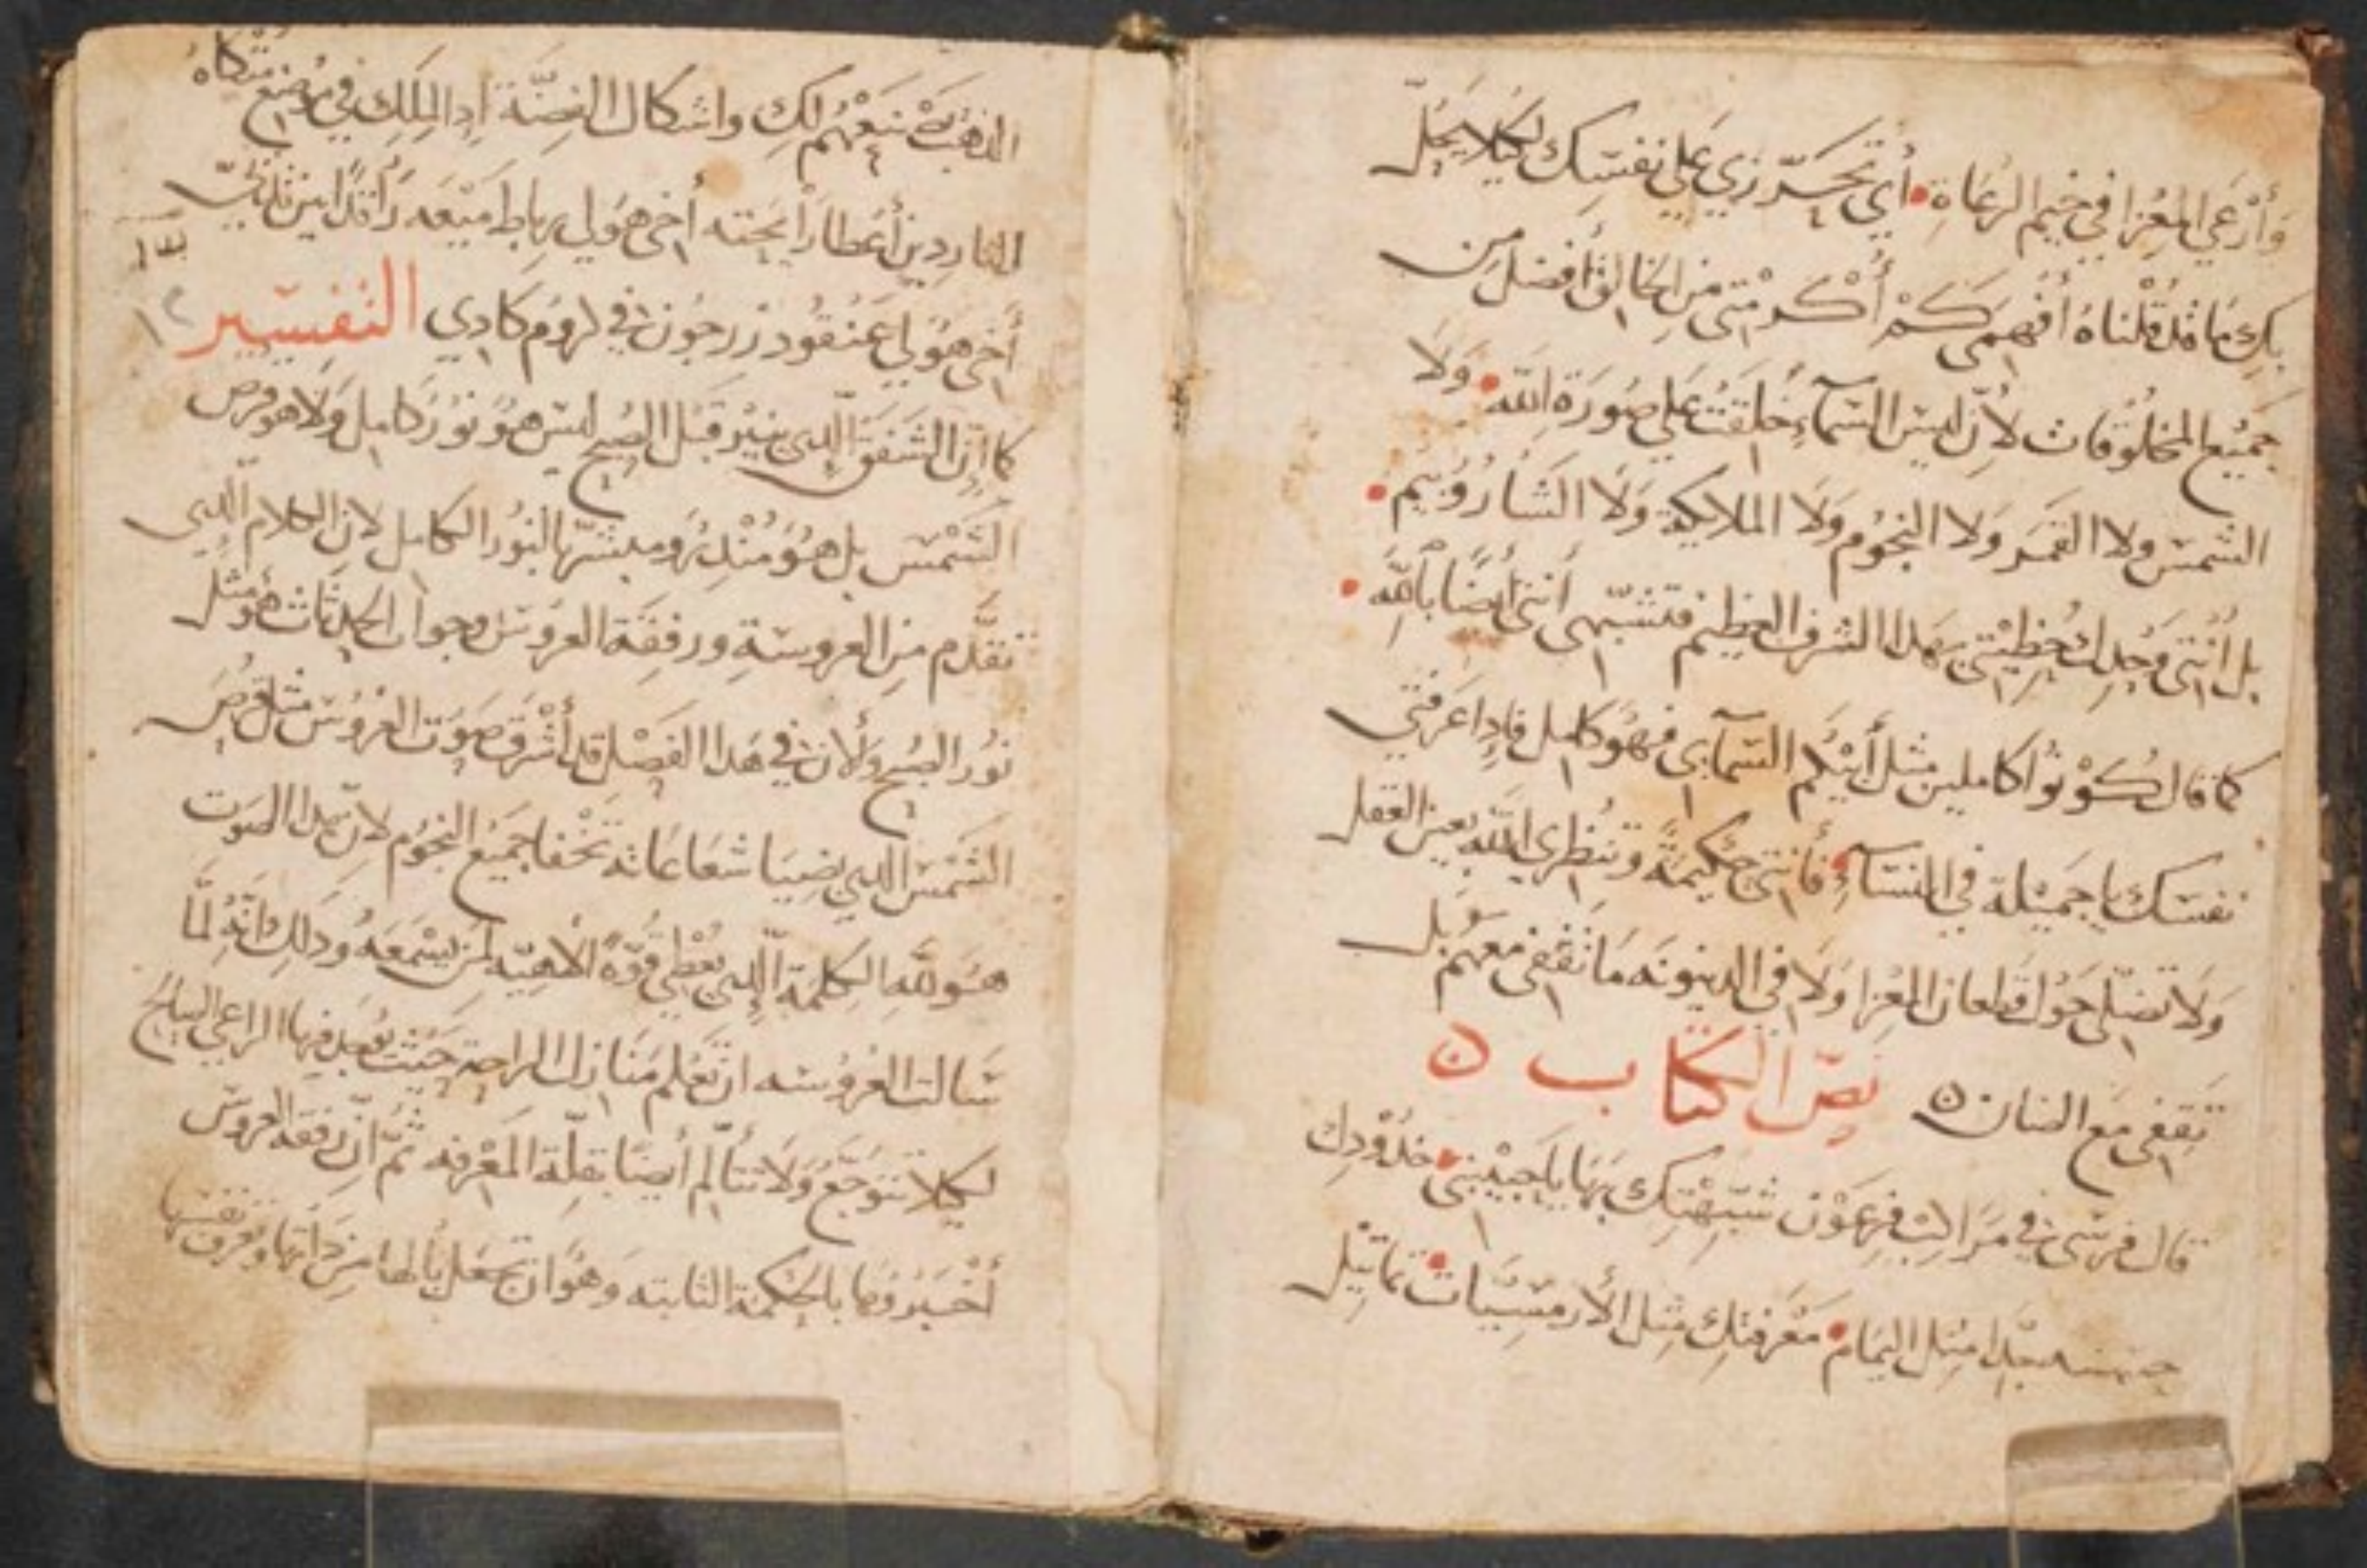 وَأرْعَي المِعْزا في خيم الرُعَاة أي تحَرّزي عَلي نفسِك لكيلا يحُلّ
بكِ مَا قد قلنَاهُ أفهمي كمْ أكرمتي من الخالق أفضل من
جَميْع المخلوُقات لأن ليس السّمآء خلقت علي صُورَة الله ولا
الشمس ولا القمَر ولا النجُوم وَلا الملايكة وَلا الشارُوبيم
بل أنْتي وَحْدك حُظِيتي بهدا الشرف العظيم فتشبّهي أنتي أيضًا بالله
كما قال كوْنوُا كاملين مثل أبيْكم السّمآيى فهوَ كامل فادا عَرفتي
نفسَك يا جَميْلة في النسَآء فأنتي حَكيمَة وتنظري الله بعين العقل
وَلا تضلّي حَول قطعان المعزا وَلا في الدينونه مَا تقفي معهم بل
تقفي مَع الضان ن نصّ الكتاب ن
قال فرسَى في مَراكب فرعَوْن شبّهتك بهَا يا حَبيْبتي خدُوْدك
جدا مثل اليمَام مَعْرفتك مثل الأرمسيات تماتيل
الذهبْ نصْنعهُم لك واشكال الفضّة ادا الملك في موضع متكاه
الناردين أعَطا رَايحته أخي هوَلي رباط ميْعه رَاقدًا بين ثدييّ
أخي هوُلي عَنقود زرجُون في كروُم كادي التفسير
كما انّ الشفق الّدي ينيْر قبْل الصُبح ليسَ هوُ نوُر كامِل وَلا هو قرص
الشمْس بل هوَ مُنْدرُ ومبشرّ بالنوُر الكامل لان الكلام الّدي
تقدّم من العروسَةِ ورفقة العروسَ وجواب الحدثات هوُ مثل
نوُر الصُبح وَلأن في هَدا الفصْل قد أشْرق صَوَت العرُوس مثل قرُص
الشمْس الدي بضيَا شعَاعَاته تخْفا جَميْع النجُوم لانّ هدا الصَوت
هوَ لله الكلمة الّدي يعْطي قوّة الاهيّه لمن يسْمعَهُ ودلك انّهُ لمَّا
سَالت العرُوسَه ان تعْلم مَنازل الراحة حَيْث يُوجد فيهَا الراعي الصالح
لكيلا تتوجّع وَلا تتألّم أيضًا بقلّة المَعْرفه ثمّ انّ رفقة العروسَ
أخْبروُها بالحكمَة الثابته وَهوُ ان تجعَل بالها من داتها وتعرف نفسها